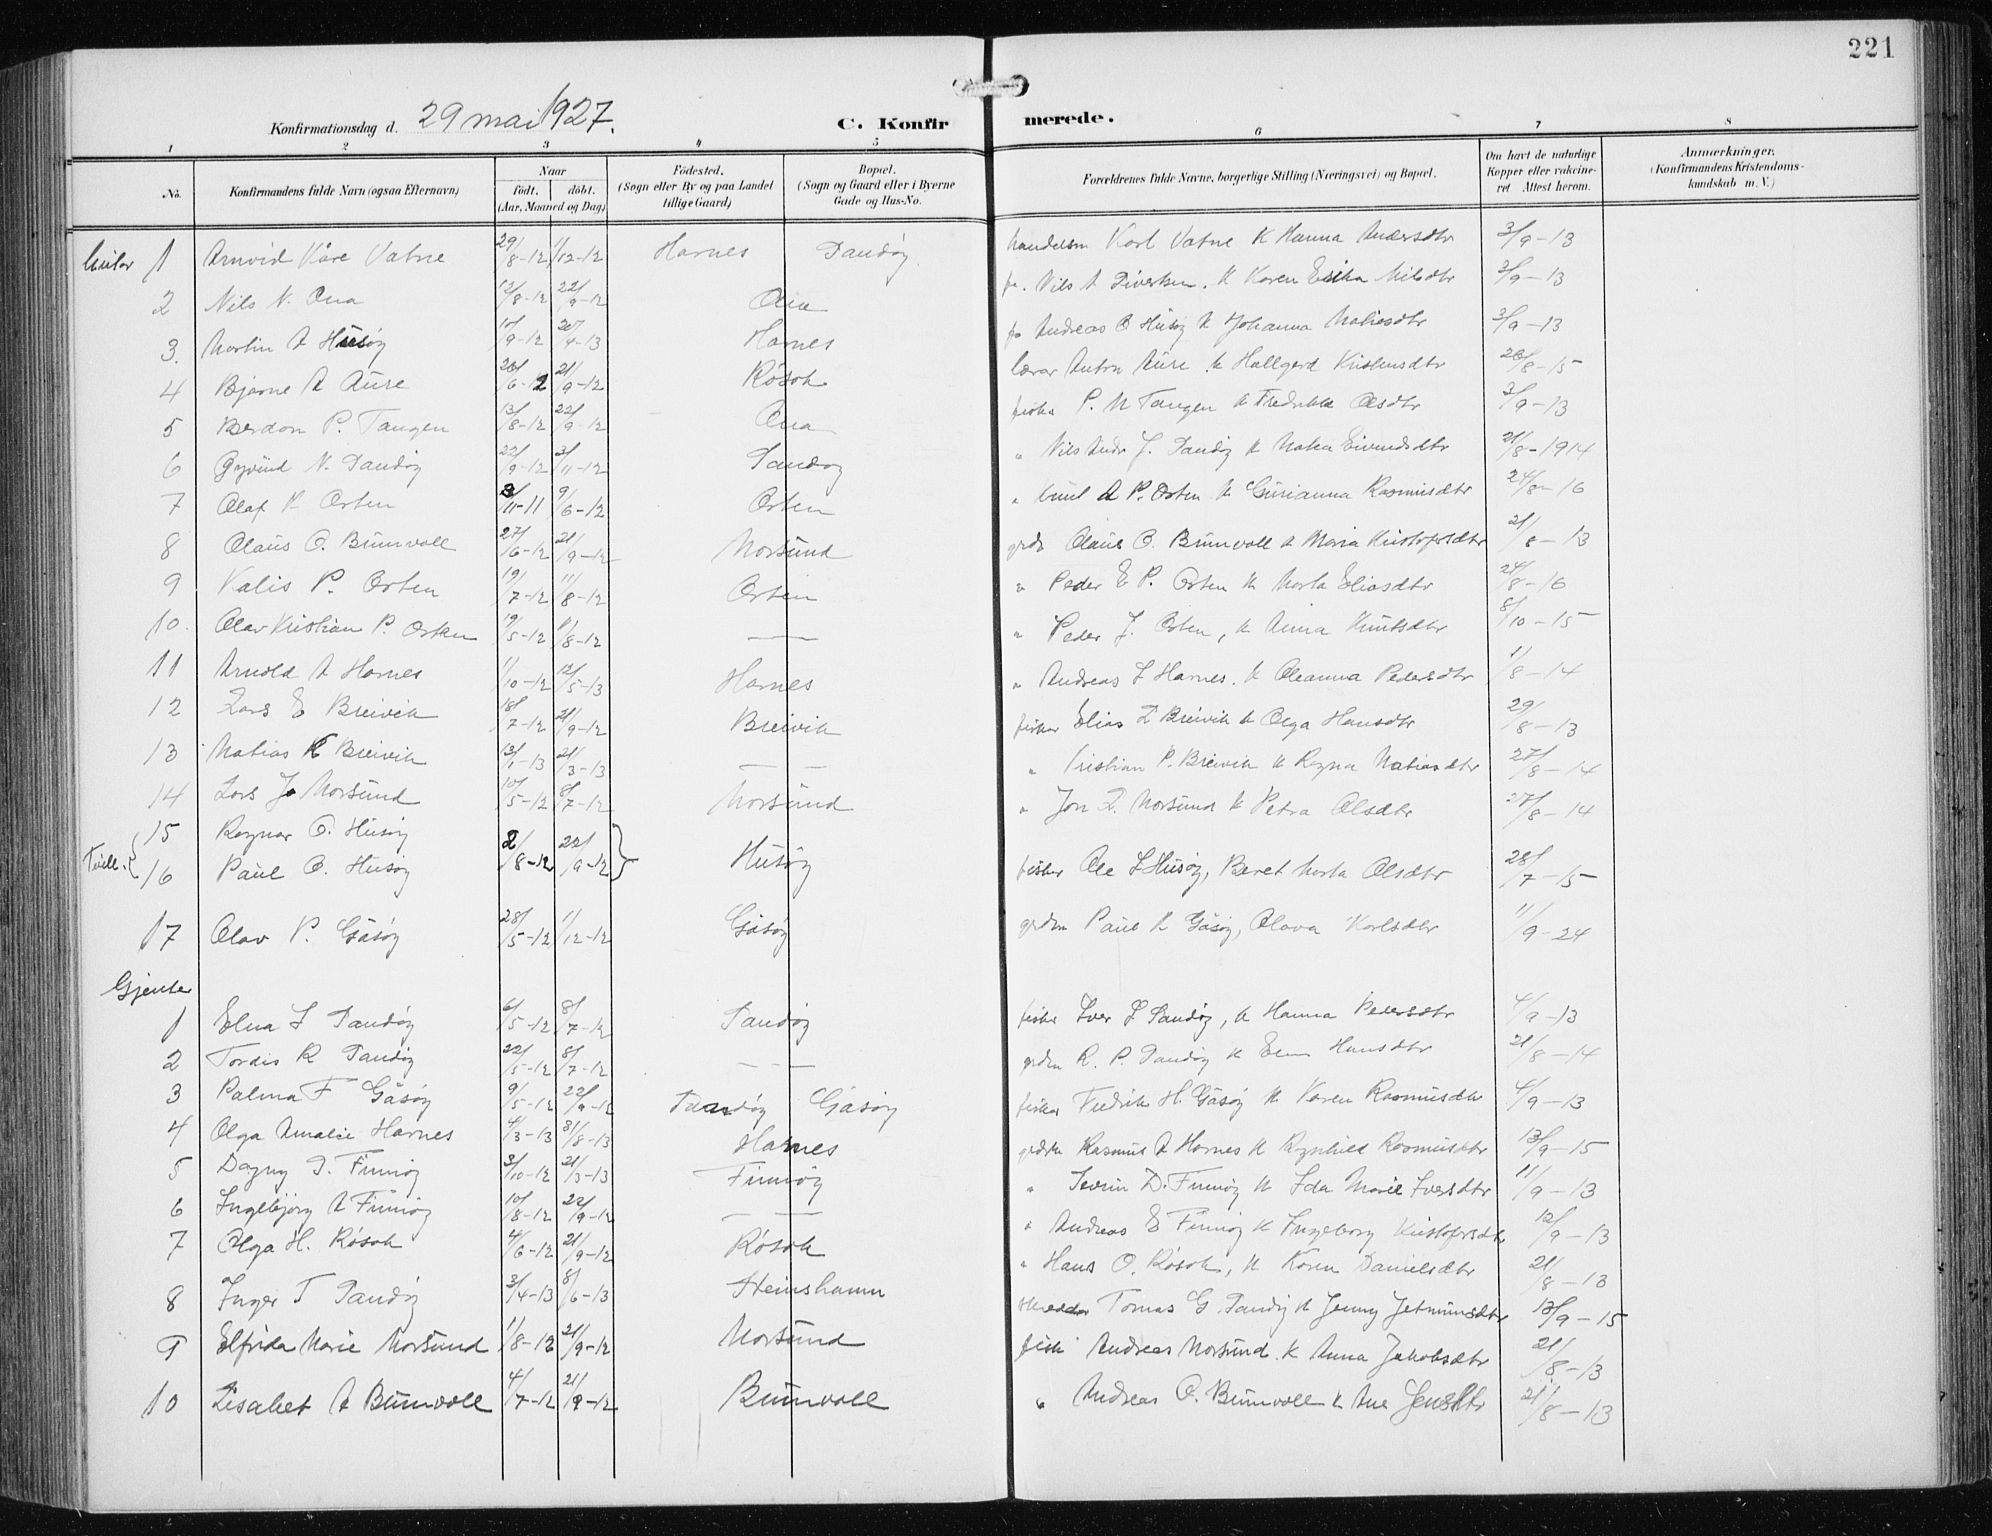 221
Konfirmationsdag d. 29 mai 1927.
C. Konfirmerede.
1 2 3 4 5 6 7 8
No. Konfirmandens fulde Navn (ogsaa Efternavn) Naar født. døbt. (Aar, Maaned og Dag) Fødested. (Sogn eller By og paa Landet tillige Gaard) Bopæl. (Sogn og Gaard eller i Byerne Gade og Hus-No. Forældrenes fulde Navne, borgerlige Stilling (Næringsvei) og Bopæl. Om havt de naturlige Kopper eller vakcineret Attest herom. Anmærkninger. (Konfirmandens Kristendomskundskab m. V.)
1 Arnvid Kåre Vatne 29/8-12 1/12-12 Harnes Sandøy handelsm Karl Vatne K Hanna Andersdtr 3/9-13
2 Nils N. Ona 12/8-12 22/9-12 Ona Nils A Siversen. K Karen Erika Nilsdtr 3/9-13
3. Martin A Husøy 9-12 20/4-13 Harnes Andreas O Husøy K Johanna Matiasdtr 3/9-13
4 Bjarne A Aure 6-12 21/9-12 Røsok lærar Anton Aure K Hallgerd Kristensdtr 28/8-15
5 Berdon P. Tangen 13/8-12 22/9-12 Ona fiskar P. N Tangen K Fredrikke Olsdtr 3/9-13
6 Øyvind N. Sandøy 22/9-12 3/11-12 Sandøy " Nils Andr J. Sandøy K Eivindsdtr 21/8-1914
7 Olaf K Orten 11-11 9/6-12 Orten " Knut A P. Orten K Gurianna Rasmusdtr 24/8-16
8 Olaus O. Bunvoll 27/6-12 21/9-12 Morsund grdb Olaus O. Bunvoll K Maria Kristofersdtr 21/8-13
9 Kalis P. Orten 19/7-12 11/8-12 Orten " Peder E P. Orten K Marta Eliasdtr 24/8-16
10. Olav Kristian P. Orten 19/5-12 8-12 — " Peder J. Orten, K Anna Knutsdtr 8/10-15
11 Arnold A Harnes 1/10-12 12/5-13 Harnes " Andreas L Harnes. K Oleanna Pedersdtr 1/8-14
12 Lars E Breivik 18/7-12 21/9-12 Breivik fiskar Elias L Breivik K Olga Hansdtr 29/8-13
13 Matias K Breivik 13/1-13 21/3-13 — — " Kristian P. Breivik K Ragna Matiasdtr 27/8-14
14 Lars J. Morsund 10/5-12 8/7-12 Morsund " Jon L. Morsund K Petra Olsdtr 27/8-14
15 Ragnar O. Husøy
Tvill. 16 Paul O. Husøy 2/8-12 22/9-12 Husøy fisker Ole L Husøy, Beret Marta Olsdtr 28/7-15
17 Olav P. Gåsøy 28/5-12 1/12-12 Gåsøy grdm Paul K Gåsøy, Olava Karlsdtr 11/9-24
Gjenter
1 Elna I Sandøy 6/5-12 8/7-12 Sandøy fisker Iver I Sandøy, K Hanna Pedersdtr 4/9-13
2 Tordis R Sandøy 22/5-12 8/7-12 — — — grdm R. P. Sandøy K Hansdtr 21/8-14
3 Palma F Gåsøy 9/5-12 22/9-12 Sandøy Gåsøy fisker Fredrik H. Gåsøy K Karen Rasmusdtr 4/9-13
4 Olga Amalie Harnes 4/3-13 31/8-13 Harnes Rasmus A Harnes K Ragnhild Rasmusdtr 13/9-15
5 Dagny S. Finnøy 3/10-12 21/3-13 Finnøy " Severin D. Finnøy K Ida Marie Iversdtr 11/9-13
6 Ingebjørg A Finnøy 10/8-12 22/9-12 — — " Andreas E Finnøy K Ingeborg Kristofersdtr 12/9-13
7 Olga H. Røsok 4/6-12 21/9-12 Røsok " Hans O. Røsok, K Karen Danielsdtr 21/8-13
8 Inger T Sandøy 3/4-13 8/6-13 Steinshamn Tomas G. Sandøy K Jenny Jetmundsdtr 13/9-15
9 Elfrida Marie Morsund 1/8-12 21/9-12 Morsund fisk Andreas Morsund. K Anna Jakobsdtr 21/8-13
10 Lisabet A Bunvoll 4/7-12 21/9-12 Bunvoll " Andreas O. Bunvoll K Ane Jensdtr 21/8-13